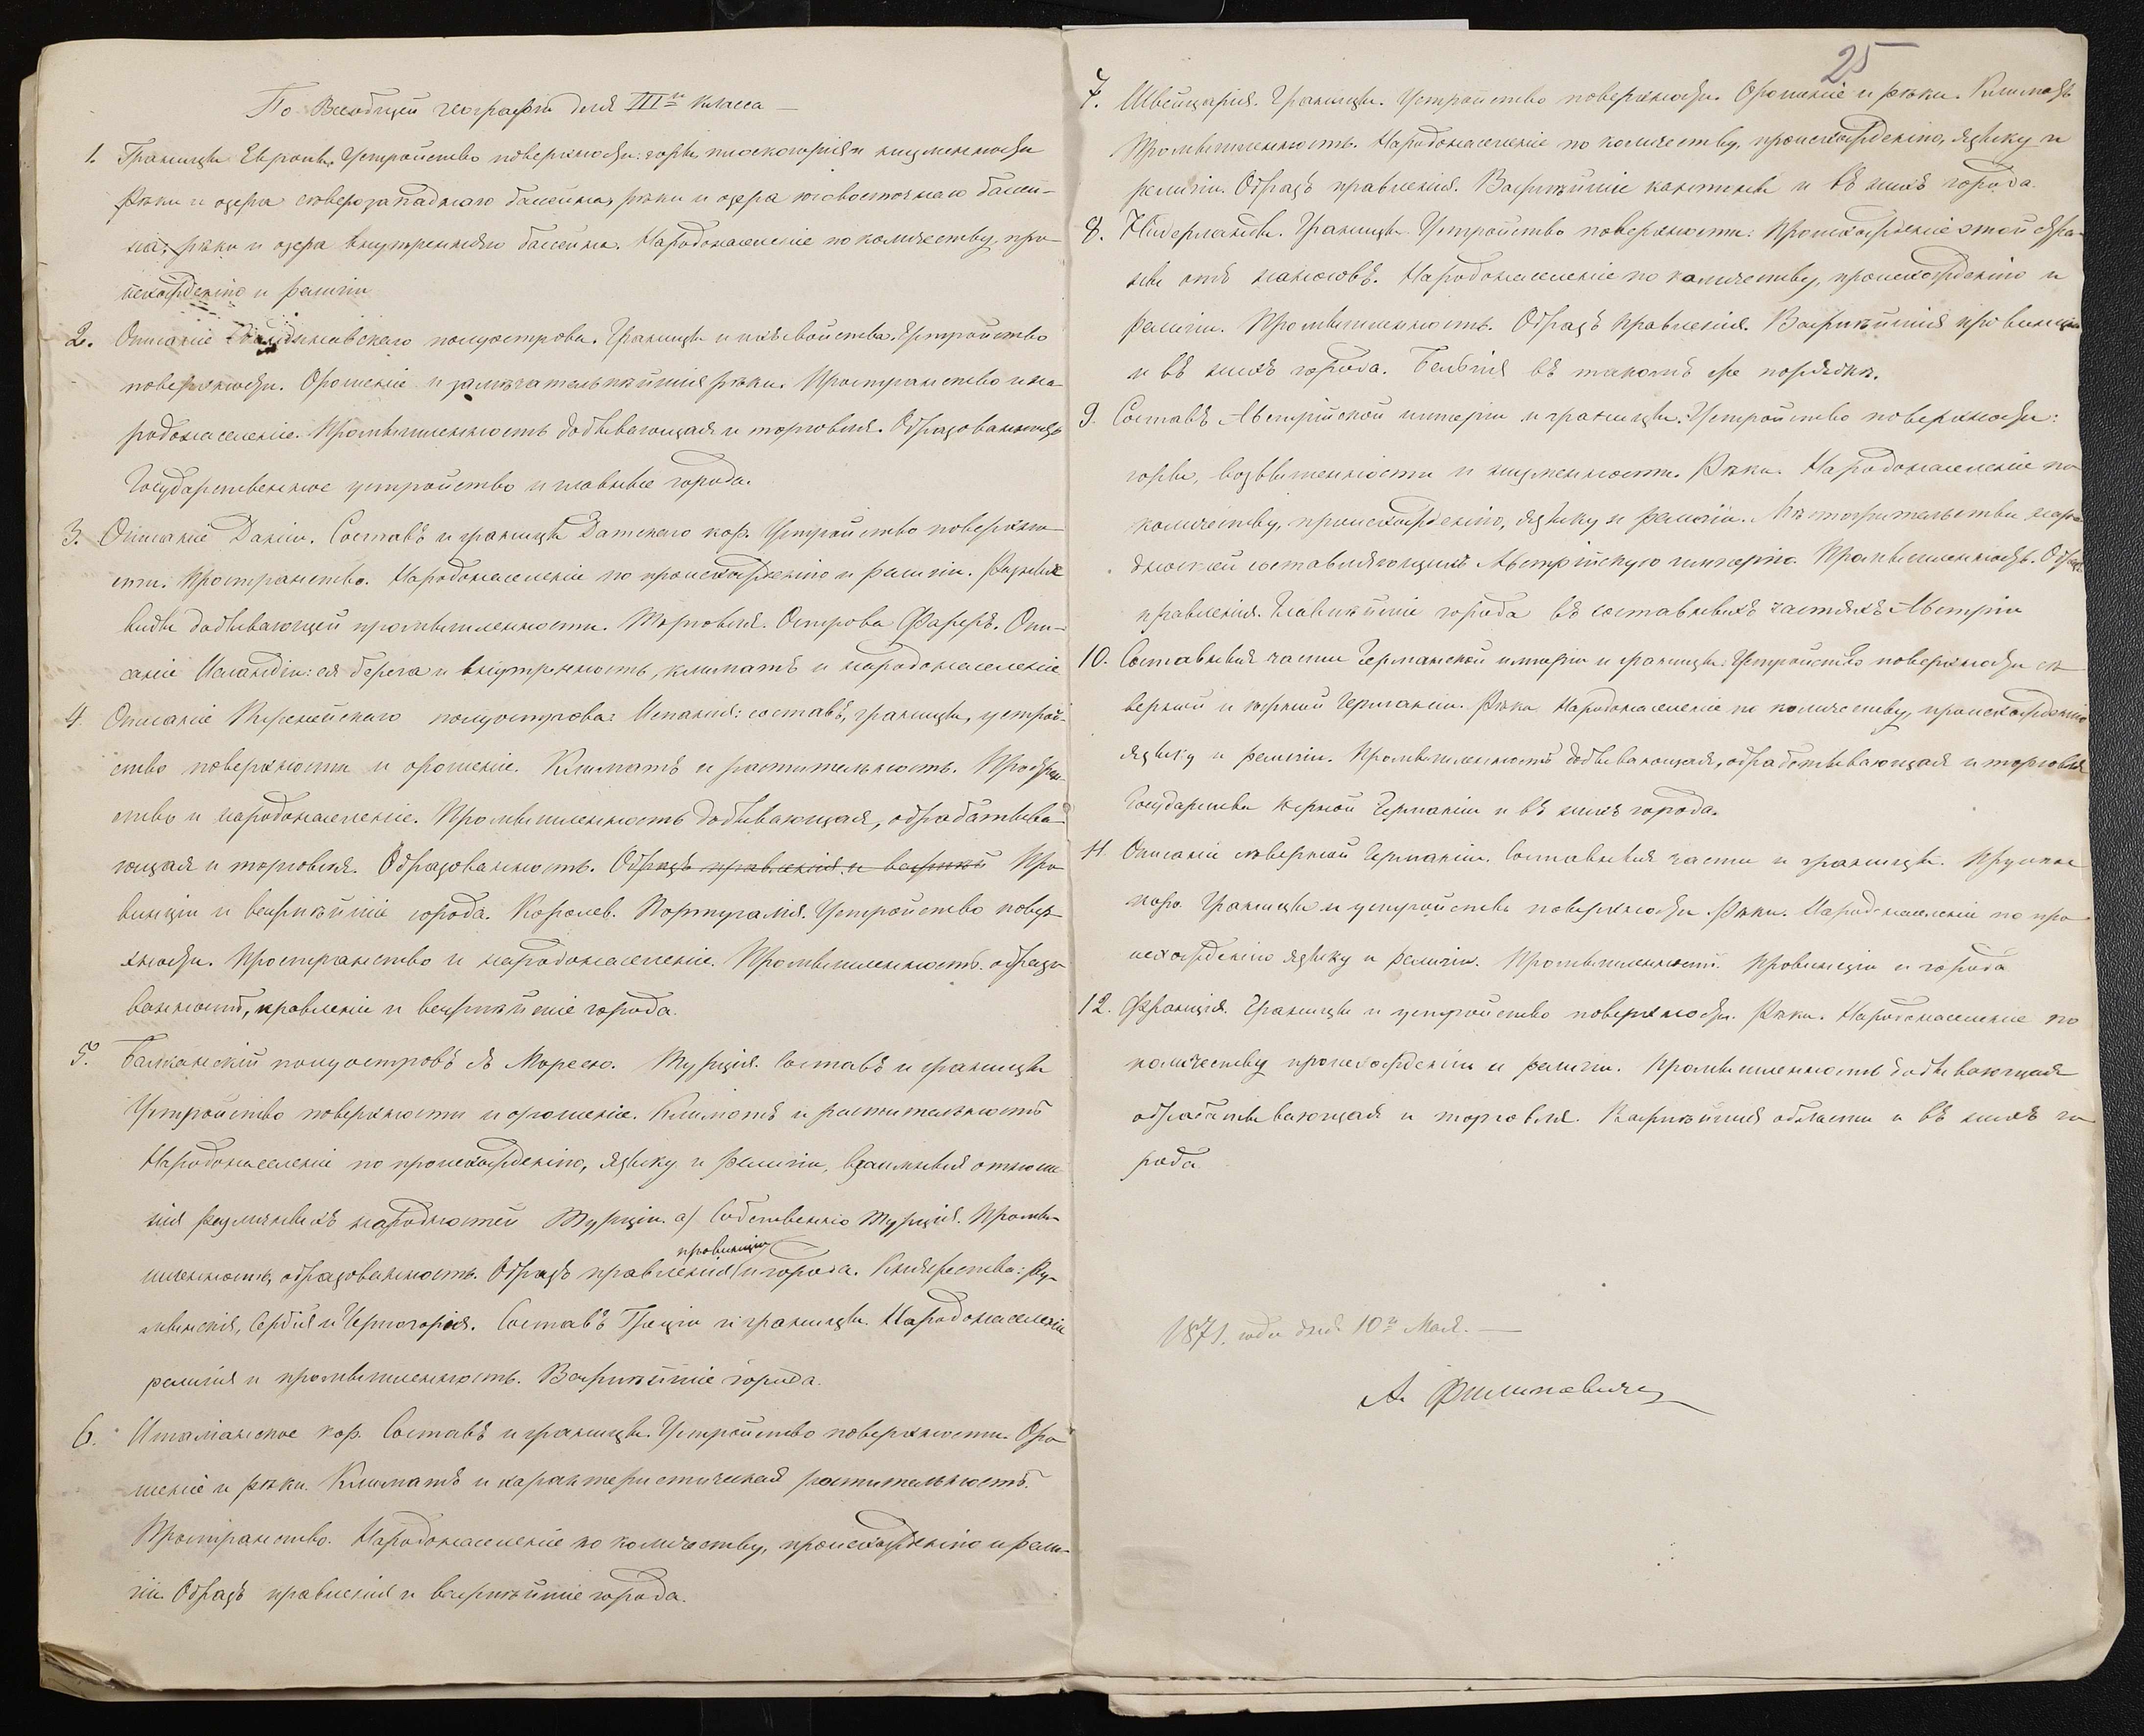 По Всеобщей географіи для III го класса —
1. Границы Европы. Устройство поверхности: горы плоскогорія и низменности
Рѣки и озера сѣверозападнаго бассейна, рѣки и озера юговосточнаго бассей-
на; рѣки и озера внутренняго бассейна. Народонаселеніе по количеству, про-
исхожденію и религіи
2. Описаніе Скандинавскаго полуострова. Границы и ихъ свойства. Устройство
поверхности. Орошеніе и замѣчательнѣйшія рѣки. Пространство и на-
родонаселеніе. Промышленность добывающая и торговля. Образованность
Государственное устройство и главные города.
3. Описаніе Даніи. Составъ и границы Датскаго кор. Устройство поверхно-
сти. Пространство. Народонаселеніе по происхожденію и религіи. Разные
виды добывающей промышленности. Торговля. Острова Фареръ. Опи-
саніе Исландіи: ея берега и внутренность, климатъ и народонаселеніе
4. Описаніе Пиренейскаго полуострова: Испанія: составъ, границы, устрой-
ство поверхности и орошеніе. Климатъ и растительность. Простран-
ство и народонаселеніе. Промышленность добывающая, обрабатыва-
ющая и торговля. Образованность. Образъ правленія и важнѣй Про-
винціи и важнѣйшіе города. Королев. Португалія. Устройство повер-
хности. Пространство и народонаселеніе. Промышленность. образо-
ванность, правленіе и важнѣйшіе города.
5. Балканскій полуостровъ съ Мореею. Турція. Составъ и границы
Устройство поверхности и орошеніе. Климатъ и растительность
Народонаселеніе по происхожденію, языку и религіи, взаимныя отноше
нія различныхъ народностей Турціи. а) Собственно Турція. Промы-
провинціи
шленность, образованность. Образъ правленія и города. Княжества: Ру-
мынскія, Сербія и Черногорія. Составъ Греціи и границы. Народонаселеніе
религія и промышленность. Важнѣйшіе города.
6. Италіанское кор. Составъ и границы. Устройство поверхности. Оро-
шеніе и рѣки. Климатъ и характеристическая растительность.
Пространство. Народонаселеніе по количеству, происхожденію и рели-
гіи. Образъ правленія и важнѣйшіе города.
25
7. Швейцарія. Границы. Устройство поверхности. Орошеніе и рѣки. Климатъ
Промышленность. Народонаселеніе по количеству, происхожденію, языку и
религіи. Образъ правленія. Важнѣйшіе кантоны и въ нихъ города.
8. Нидерланды. Границы. Устройство поверхности: Происхожденіе этой стра-
ны отъ наносовъ. Народонаселеніе по количеству, происхожденію и
религіи. Промышленность. Образъ правленія. Важнѣйшія провинціи
и въ нихъ города. Бельгія въ такомъ же порядкѣ.
9. Составъ Австрійской имперіи и границы. Устройство поверхности:
горы, возвышенности и низменности. Рѣки. Народонаселеніе по
количеству, происхожденію, языку и религіи. Мѣстожительства наро-
дностей составляющихъ Австрійскую имперію. Промышленность. Образъ
правленія. Главнѣйшіе города въ составныхъ частяхъ Австріи
10. Составныя части Германской имперіи и границы. Устройство поверхности сѣ
верной и южной Германіи. Рѣки. Народонаселеніе по количеству, происхожденію
языку и религіи. Промышленность добывающая, обработывающая и торговля
Государства южной Германіи и въ нихъ города.
11. Описаніе сѣверной Германіи. Составныя части и границы. Прусское
кор. Границы и устройство поверхности. Рѣки. Народонаселеніе по про
исхожденію языку и религіи. Промышленность. Провинціи и города
12. Франція. Границы и устройство поверхности. Рѣки. Народонаселеніе по
количеству происхожденію и религіи. Промышленность добывающая
обработывающая и торговля. Важнѣйшія области и въ нихъ го
рода.
1871. года дня 10 го Мая. —
А. Филиповичъ